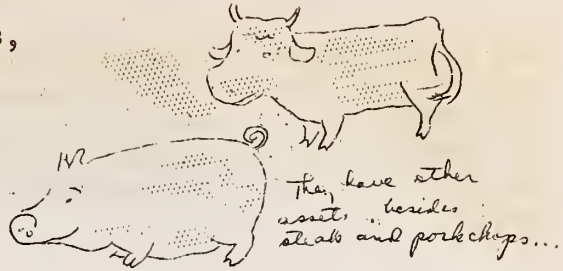 s,
They have other
assets besides
steak and porkchops...